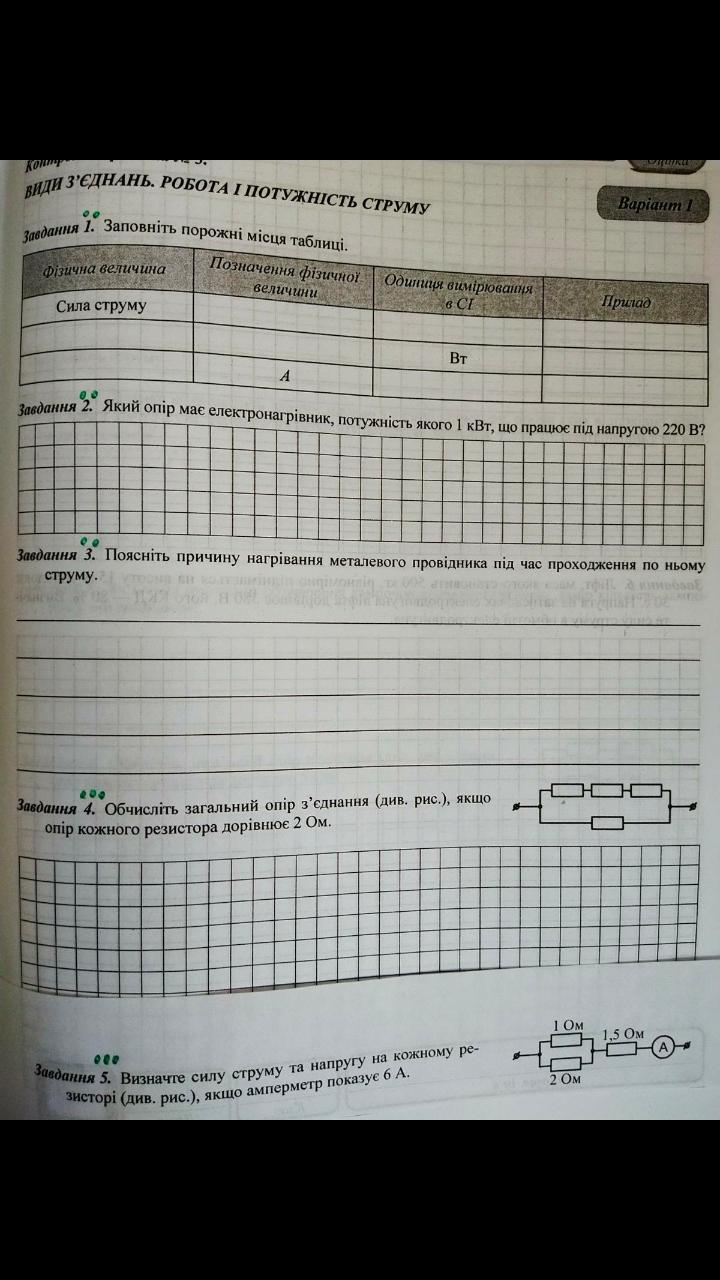 Оцінка
ВИДИ З’ЄДНАНЬ. РОБОТА І ПОТУЖНІСТЬ СТРУМУ
Варіант 1
Завдання 1. Заповніть порожні місця таблиці.
Фізична величина
Позначення фізичної
величини
Одиниця вимірювання
в СІ
Прилад
Сила струму
Вт
А
Завдання 2. Який опір має електронагрівник, потужність якого 1 кВт, що працює під напругою 220 В?
Завдання 3. Поясніть причину нагрівання металевого провідника під час проходження по ньому
струму.
Завдання 4. Обчисліть загальний опір з’єднання (див. рис.), якщо
опір кожного резистора дорівнює 2 Ом.
Завдання 5. Визначте силу струму та напругу на кожному ре-
зисторі (див. рис.), якщо амперметр показує 6 А.
1 Ом
1,5 Ом
А
2 Ом